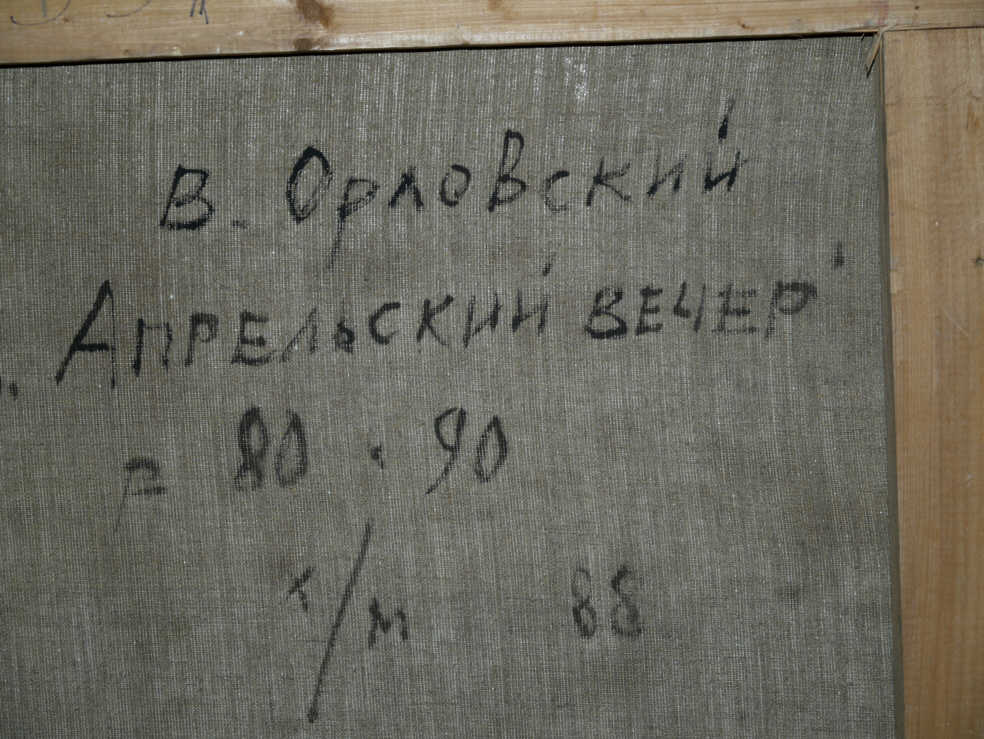 В. Орловский
"Апрельский вечер"
р = 80 · 90
х/м 88